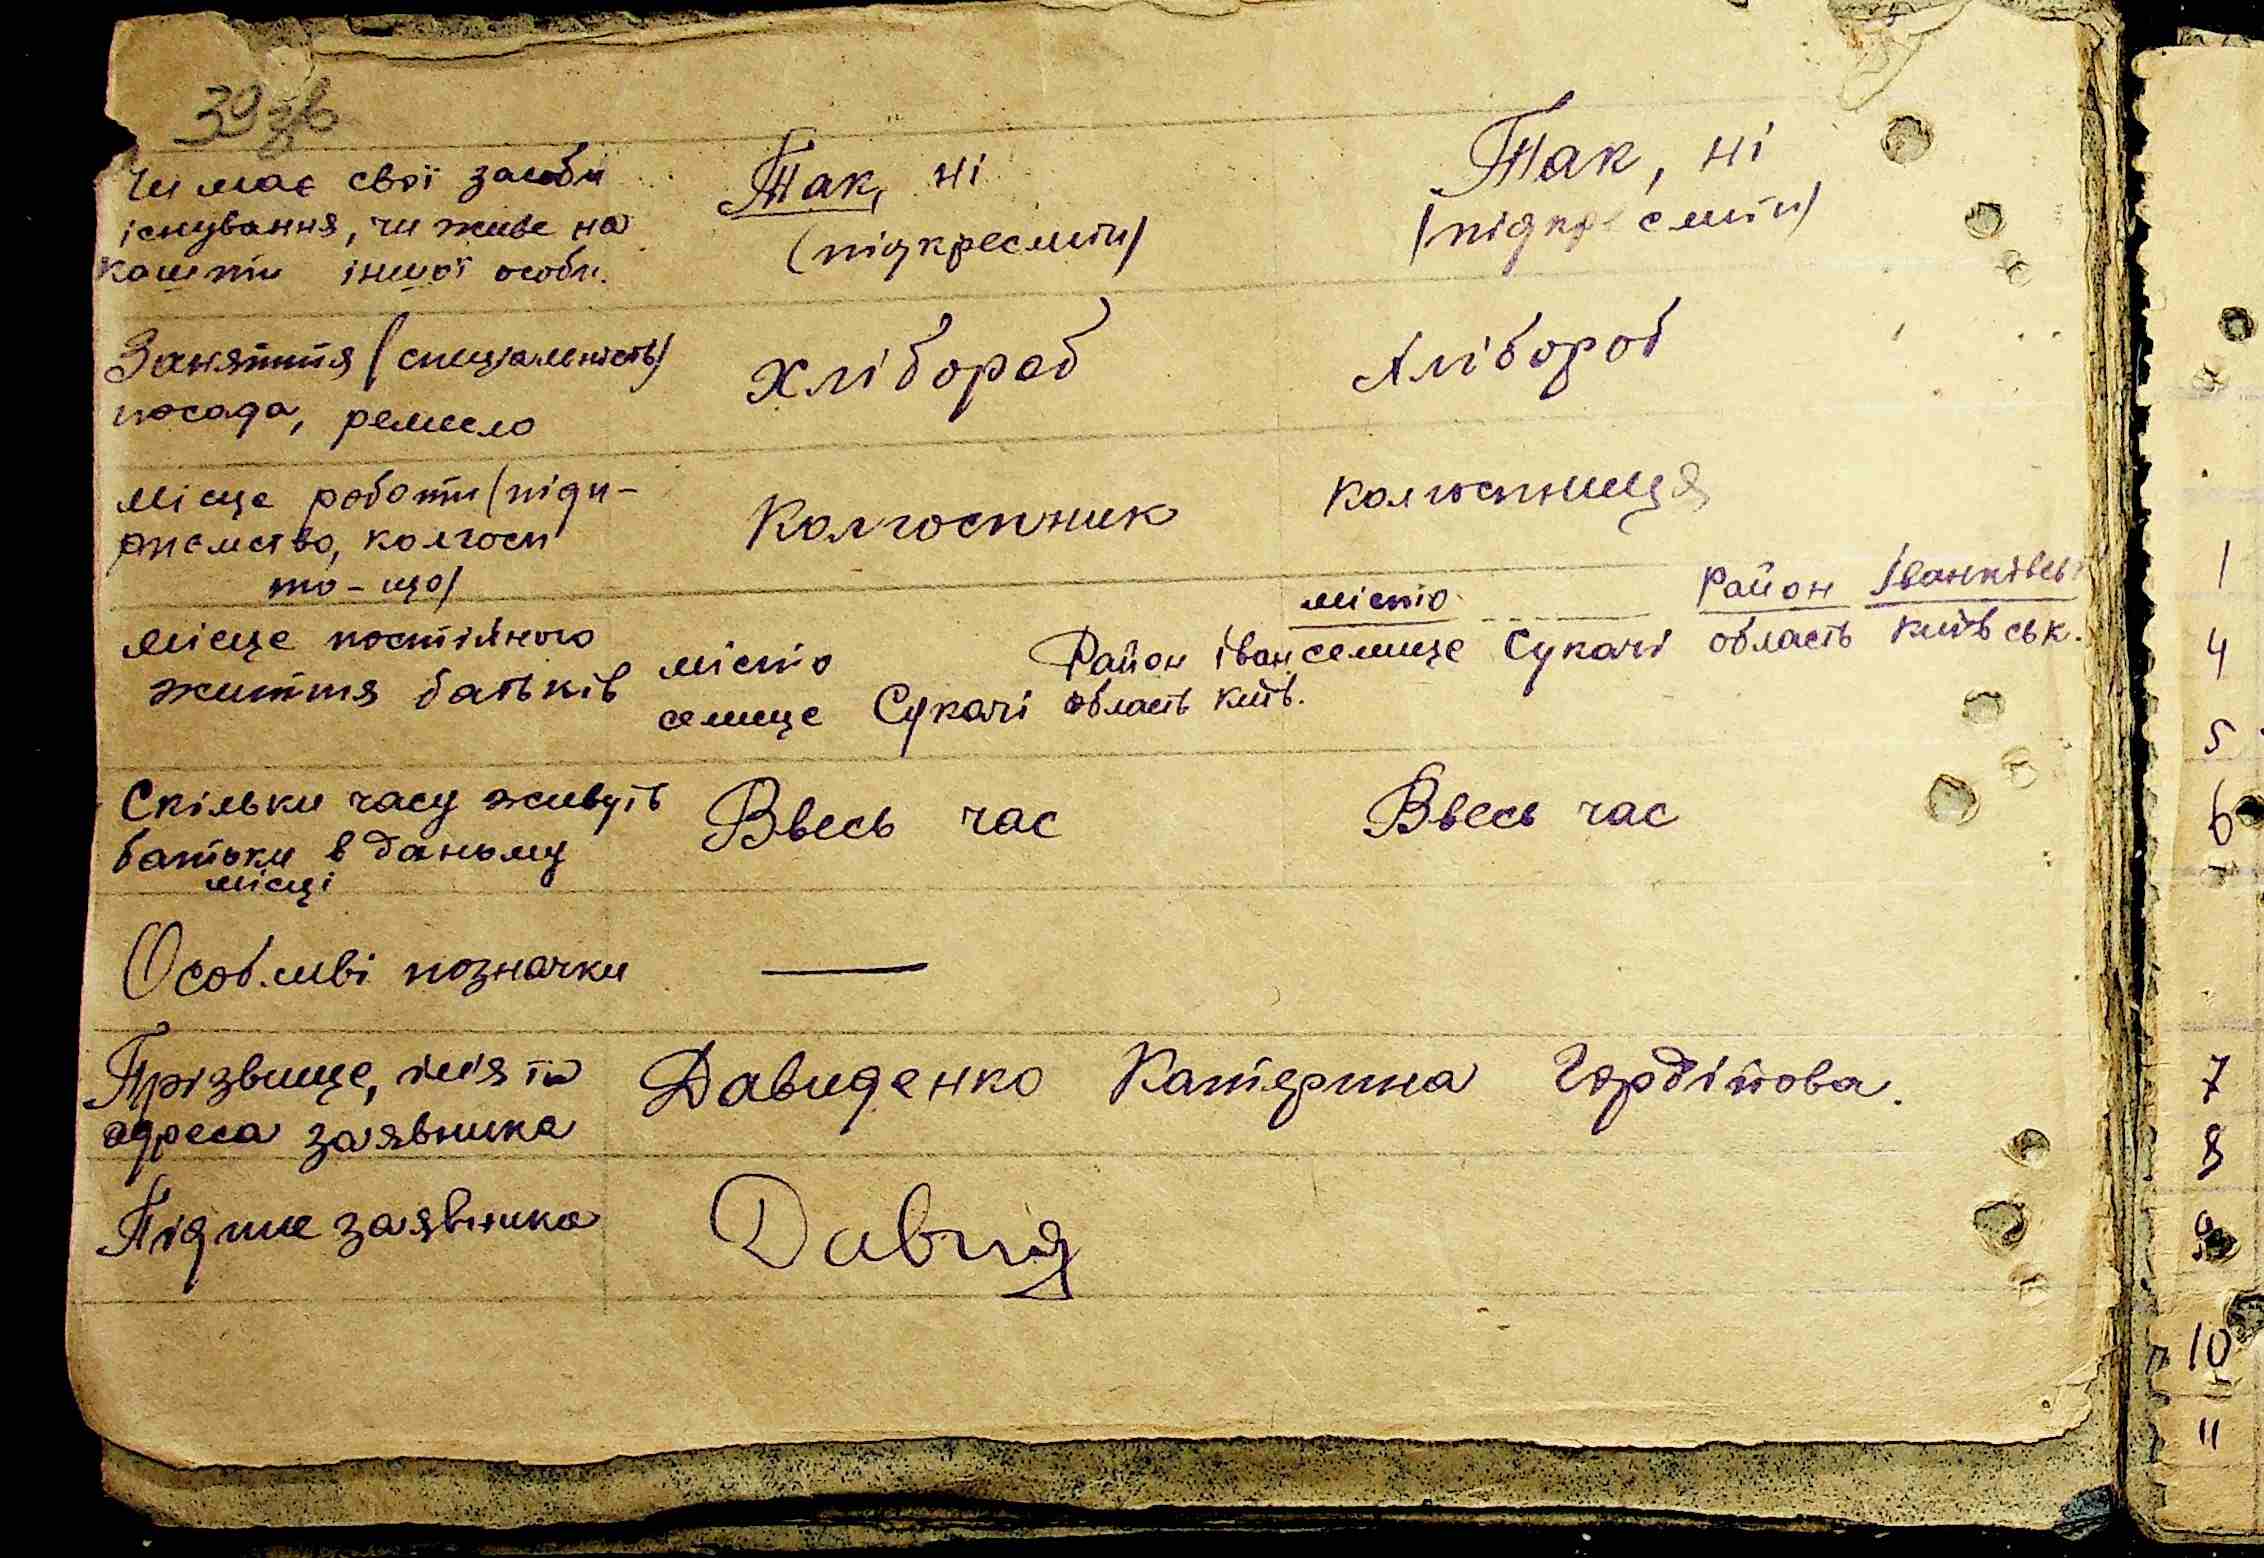 39зв
Чи має свої засоби
існування, чи живе на
кошти іншої особи.
Так, ні
(підкреслити)
Так, ні
(підкреслити)
Заняття (спеціальність)
посада, ремесло
Хлібороб
Хлібороб
Місце роботи (підп-
риємство, колгосп
то-що)
Колгоспник
колгоспниця
Місце постійного
життя батьків
місто Район Іван
селище Сукачі область Київ.
місто Район Іванківськ
селище Сукачі область Київськ.
Скільки часу живуть
батьки в даному
місці
Ввесь час
Ввесь час
Особливі позначки —
Прізвище, ім'я та
адреса заявника
Давиденко Катерина Гордійова.
Підпис заявника
Давид
1
4
5
6
7
8
9
10
11